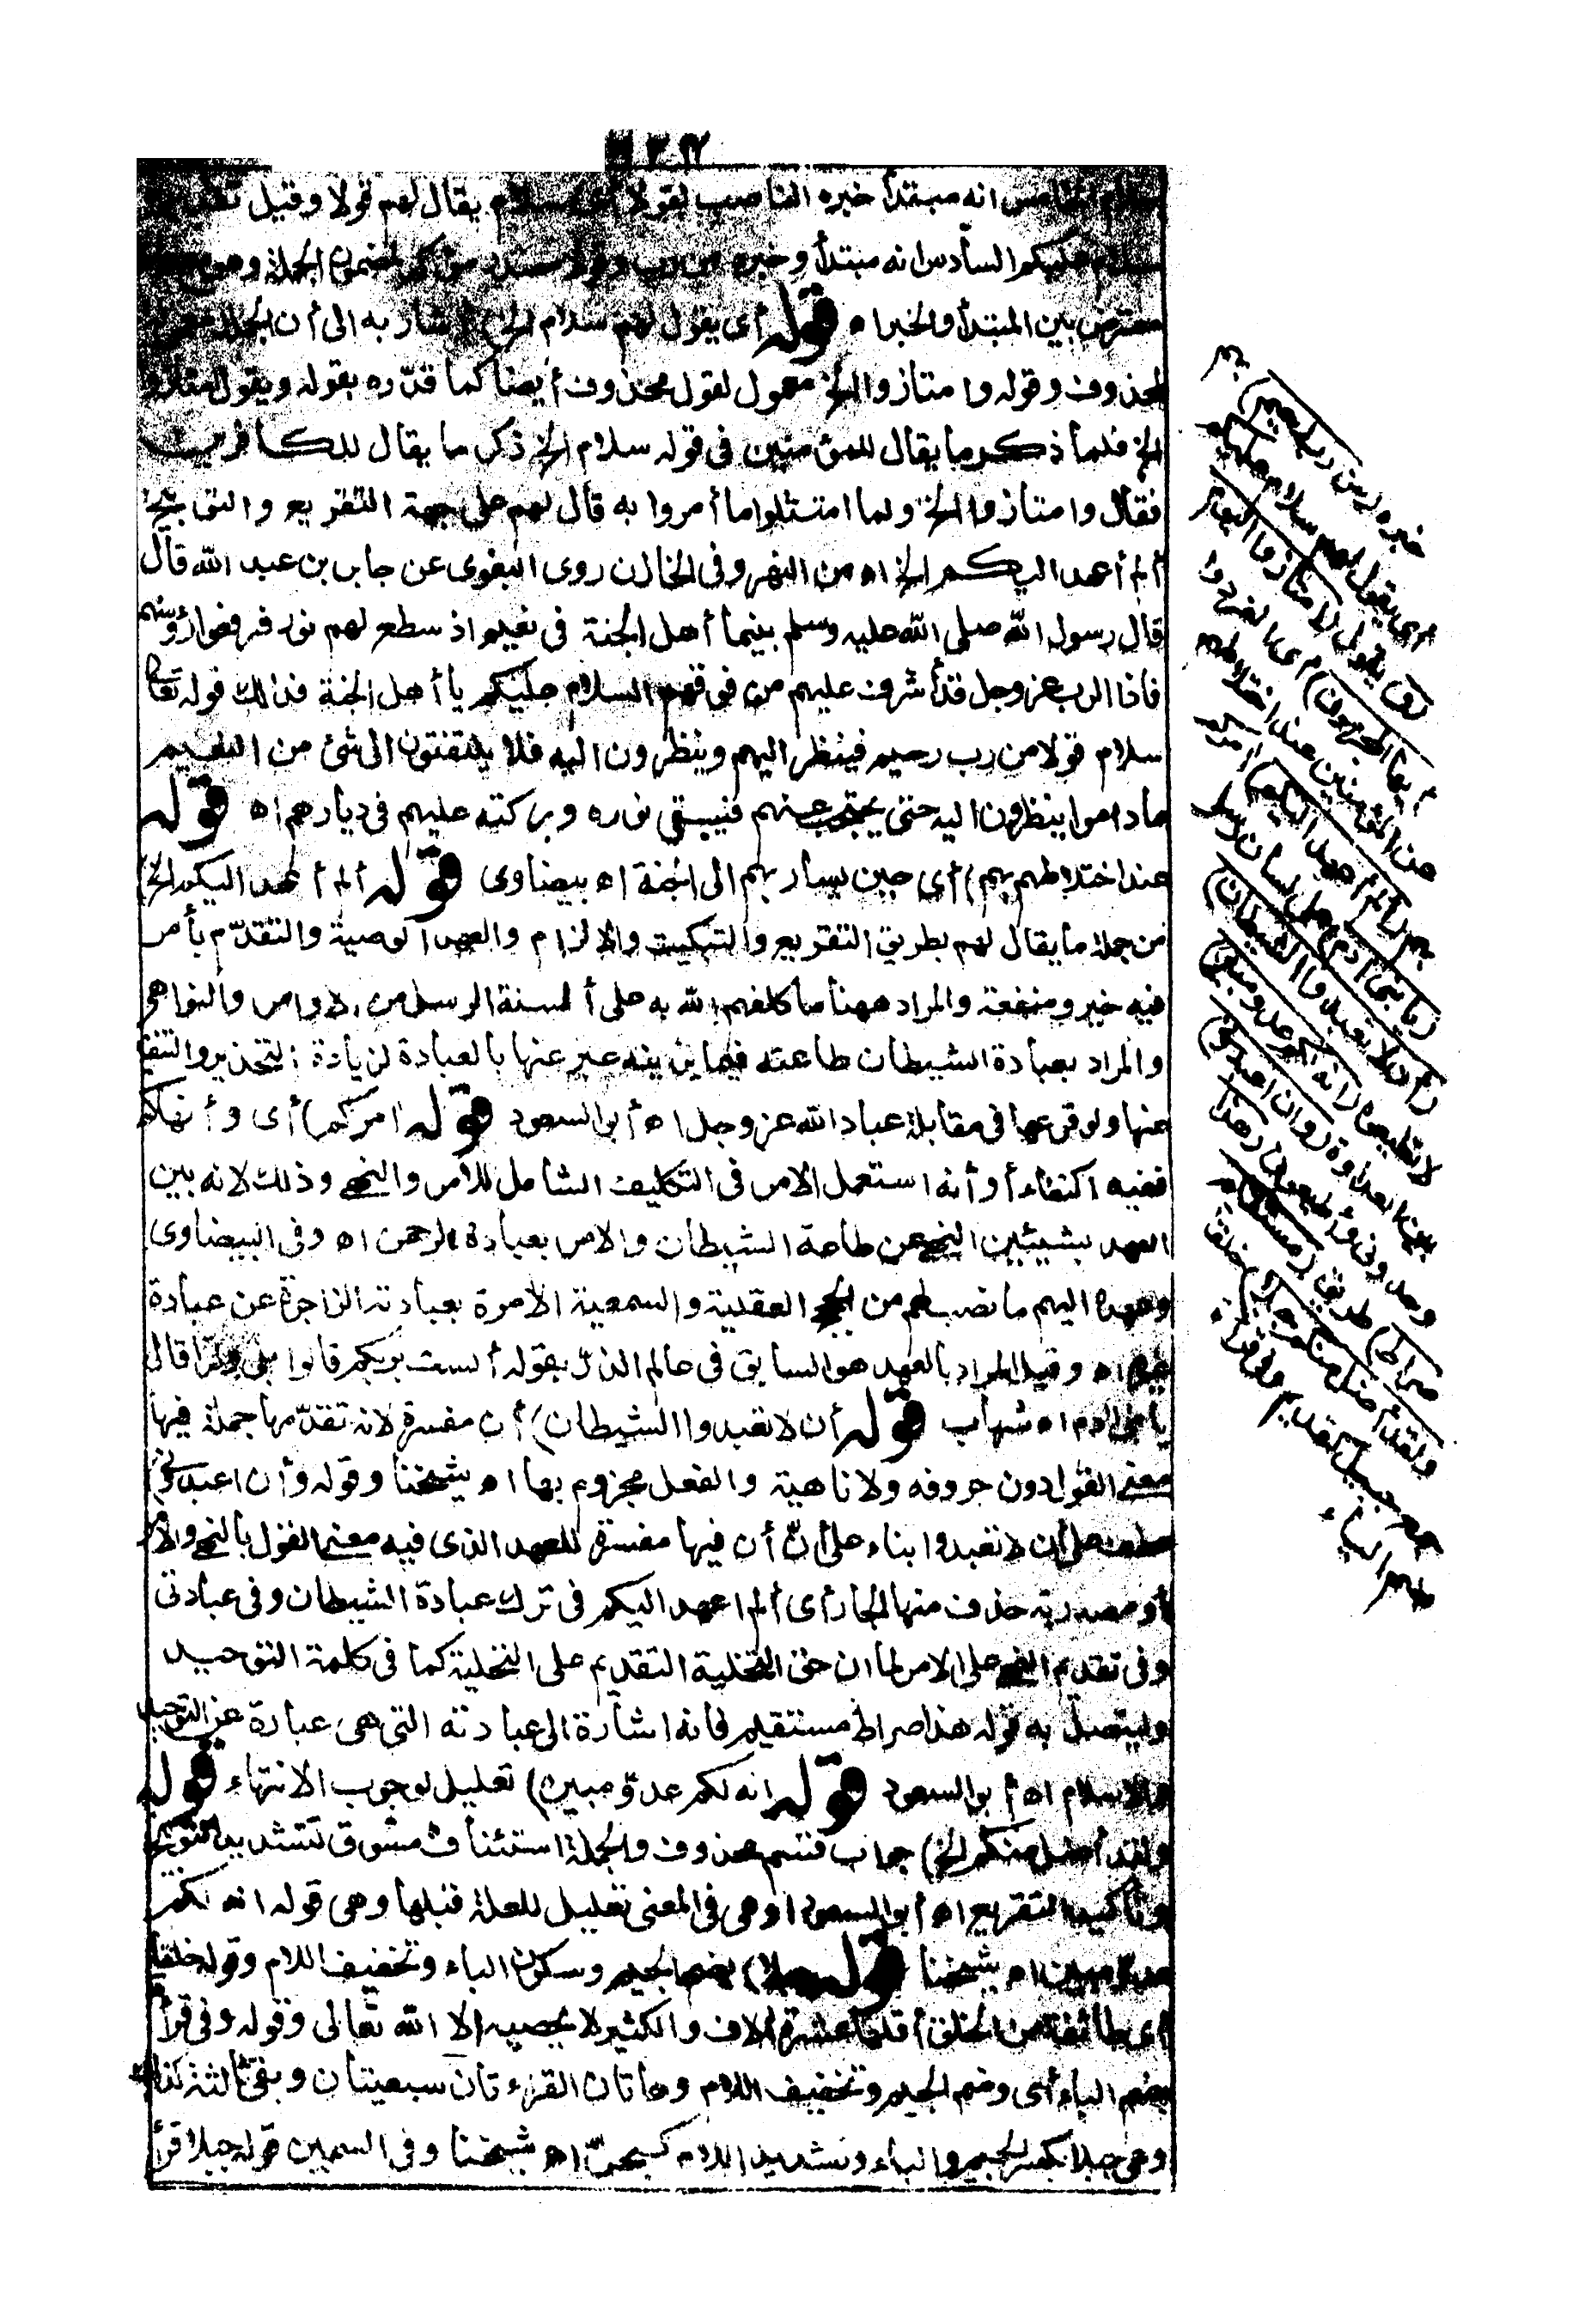 ٣٢٢
الخامس انه مبتدأ خبره الناصب لقولا أى سلام يقال لهم قولا وقيل
عليكم السادس انه مبتدأ وخبره من رب وقولا مصدر مؤكد لمضمون الجملة وهو
معترض بين المبتدأ والخبر اه قوله أى يقول لهم سلام الخ) أشار به الى أن الجملة
لمحذوف وقوله وامتازوا الخ معمول لقول محذوف أيضا كما قدّره بقوله ويقول
الخ فلما ذكر ما يقال للمؤمنين فى قوله سلام الخ ذكر ما يقال للكافرين
فقال وامتازوا الخ ولما امتثلوا ما أمروا به قال لهم على جهة التقريع والتوبيخ
ألم أعهد اليكم الخ اه من النهر وفى الخازن روى البغوى عن جابر بن عبد الله قال
قال رسول الله صلى الله عليه وسلم بينما أهل الجنة فى نعيم اذ سطع لهم نور فرفعوا رؤسهم
فاذا الرب عز وجل قد أشرف عليهم من فوقهم السلام عليكم يا أهل الجنة فذلك قوله تعالى
سلام قولا من رب رحيم فينظر اليهم وينظرون اليه فلا يلتفتون الى شئ من النعيم
ما داموا ينظرون اليه حتى يحتجب عنهم فيبقى نوره وبركته عليهم فى ديارهم اه قوله
عند اختلاطهم بهم) أى حين يسار بهم الى الجنة اه بيضاوى قوله ألم أعهد اليكم الخ)
من جملة ما يقال لهم بطريق التقريع والتبكيت والالزام والعهد الوصية والتقدّم بأمر
فيه خير ومنفعة والمراد ههنا ما كلفهم الله به على ألسنة الرسل من الاوامر والنواهى
والمراد بعبادة الشيطان طاعته فيما يزينه عبر عنها بالعبادة لزيادة التحذير والتنفير
عنها ولوقوعها فى مقابلة عباد الله عز وجل اه أبو السعود قوله امركم) أى وأنهاكم
ففيه اكتفاء أو أنه استعمل الامر فى التكليف الشامل للامر والنهى وذلك لانه بين
العهد بشيئين النهى عن طاعة الشيطان والامر بعبادة الرحمن اه وفى البيضاوى
وعهده اليهم ما نصب لهم من الحجج العقلية والسمعية الامرة بعبادته الزاجرة عن عبادة
غيره اه وقيل المراد بالعهد هو السابق فى عالم الذرّ بقوله ألست بربكم قالوا بلى ولذا قال
يا بنى ادم اه شهاب قوله أن لا تعبدوا الشيطان) أن مفسرة لانه تقدّمها جملة فيها
معنى القول دون حروفه ولا ناهية والفعل مجزوم بها اه شيخنا وقوله وأن اعبدونى
عطف على أن لا تعبدوا بناء على أنّ أن فيها مفسرة للعهد الذى فيه معنى القول بالنهى والامر
أو مصدرية حذف منها الجار أى ألم اعهد اليكم فى ترك عبادة الشيطان وفى عبادتى
وفى تقديم النهى على الامر لما ان حق التخلية التقديم على التحلية كما فى كلمة التوحيد
وليتصل به قوله هذا صراط مستقيم فانه اشارة الى عبادته التى هى عبارة عن التوحيد
والاسلام اه أبو السعود قوله انه لكم عدوّ مبين) تعليل لوجوب الانتهاء قوله
ولقد أضل منكم الخ) جواب قسم محذوف والجملة استئناف مسوق لتشديد التوبيخ
وتأكيد التقريع اه أبو السعود او هى فى المعنى تعليل للعلة قبلها وهى قوله انه لكم
عدوّ مبين اه شيخنا قوله جبلا) بضم الجيم وسكون الباء وتخفيف اللام وقوله خلقا
أى طائفة من الخلق أقلها عشرة آلاف والكثير لا يحصيه الا الله تعالى وقوله وفى قراءة
بضم الباء أى وضم الجيم وتخفيف اللام وهاتان القراءتان سبعيتان وبقى ثالثة كذلك
وهى جبلا بكسر الجيم والباء وتشديد اللام كسجلّ اه شيخنا وفى السمين قوله جبلا قرأ
خبره (من رب رحيم) بهم
أى يقول لهم سلام عليكم
(و) يقول (امتازوا اليوم
أيها المجرمون) أى انفردوا
عن المؤمنين عند اختلاطهم
بهم (ألم أعهد اليكم) امركم
(يا بنى آدم) على لسان رسلى
(أن لا تعبدوا الشيطان)
لا تطيعوه (انه لكم عدو مبين)
بين العداوة (وأن اعبدونى)
وحدونى وأطيعونى (هذا
صراط) طريق (مستقيم
ولقد أضل منكم جبلا) خلقا
جمع جبيل كقديم وفى قراءة
بضم الباء